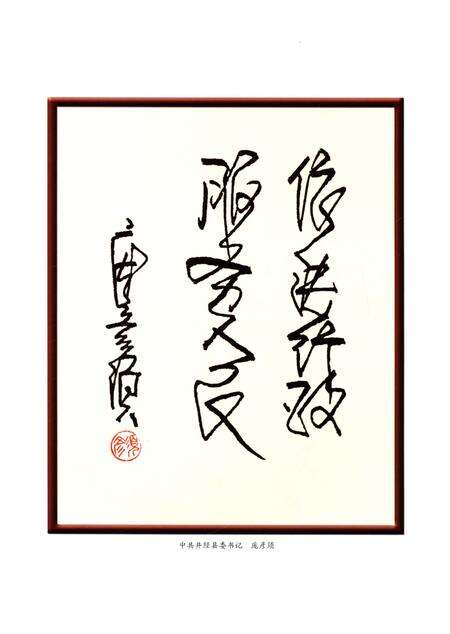 依法行政
服务人民
庞彦须
中共井陉县委书记 庞彦须